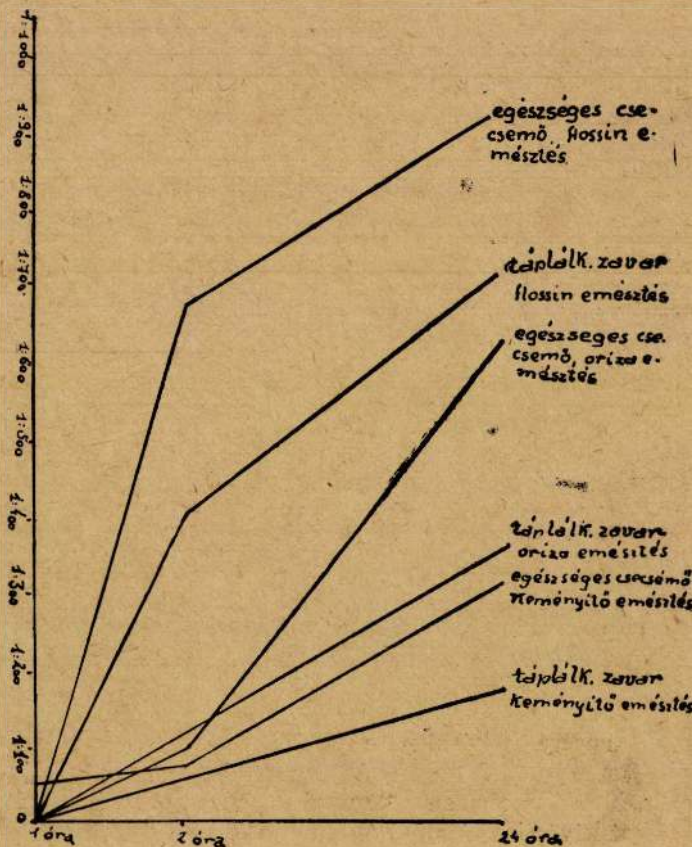 1:1000
1:900
1:800
1:700
1:600
1:500
1:400
1:300
1:200
1:100
0
egészséges cse-
csemő, flossin e-
mésztés
táplálk. zavar
flossin emésztés
egészseges cse-
csemő, oriza e-
mésztés
táplálk. zavar
oriza emésztés
egészséges csecsémő
Keményitő emésztés
táplálk. zavar
Keményitő emésztés
1 óra
2 óra
24 óra